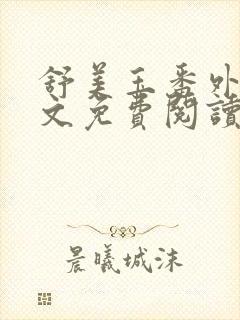 舒美玉番外
文免費閱讀
晨曦城沫